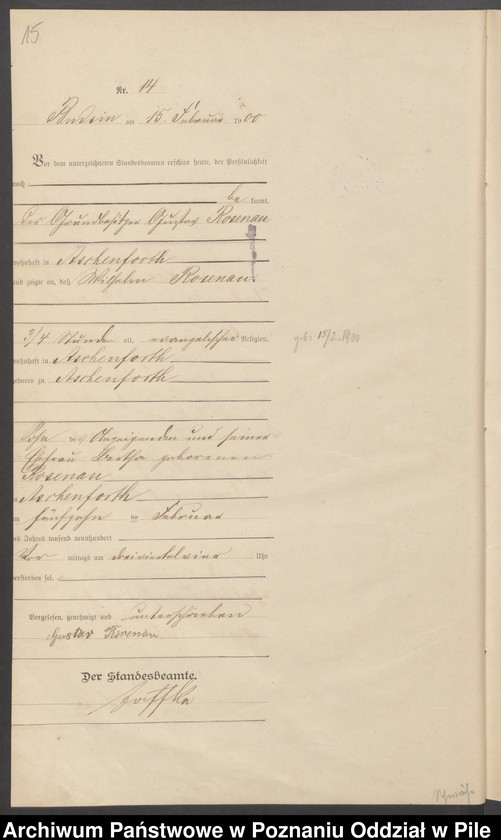 15
Nr. 14
Budsin am 15. Februar 1900
Vor dem unterzeichneten Standesbeamten erschien heute, der Persönlichkeit
nach
be kannt,
der Grundbesitzer Gustav Rosenau
wohnhaft in Aschenforth
und zeigte an, daß Wilhelm Rosenau
3/4 Stunde alt, evangelischer Religion,
wohnhaft in Aschenforth
geboren zu Aschenforth
geb: 15/2. 1900
Sohn des Anzeigenden und seiner
Ehefrau Bertha geborenen
Rosenau
Aschenforth
am fünfzehn ten Februar
des Jahres tausend neunhundert
Vor mittags um dreiviertel vier Uhr
verstorben sei.
Vorgelesen, genehmigt und unterschrieben
Gustav Rosenau
Der Standesbeamte.
Archiwum Państwowe w Poznaniu Oddział w Pile